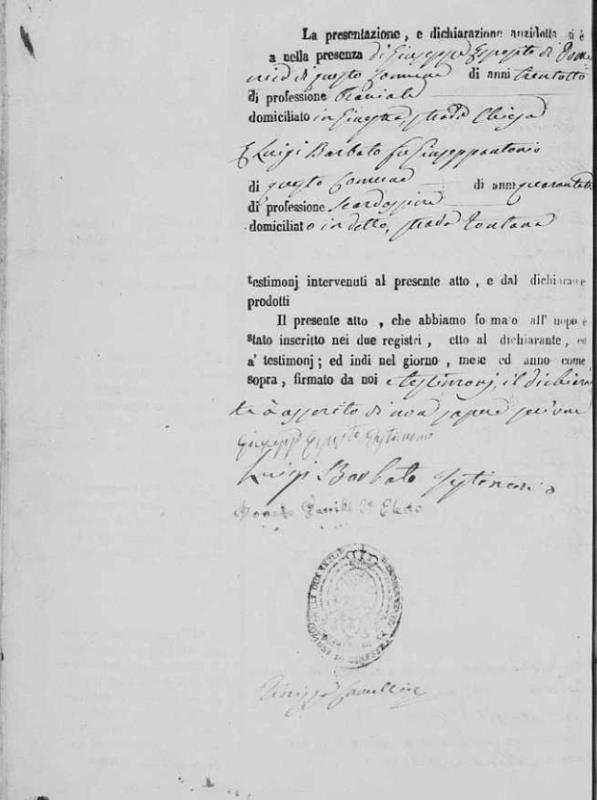 La presentazione, e dichiarazione anzidetta si è
a nella presenza di Giuseppe Esposito di
di questo Comune di anni trentotto
di professione
domiciliato in strada Chiesa
E Luigi Barbato fu Giuseppantonio
di questo Comune di anni
di professione
domiciliato in detto, strada Fontana
testimonj intervenuti al presente atto, e dal dichiarante
prodotti
Il presente atto, che abbiamo formato all' uopo è
stato inscritto nei due registri, etto al dichiarante, ed
a' testimonj; ed indi nel giorno, mese ed anno come
sopra, firmato da noi e testimonj, il dichiaran
te à asserito di non sapere scrivere
Giuseppe Esposito Testimone
Luigi Barbato Testimonio